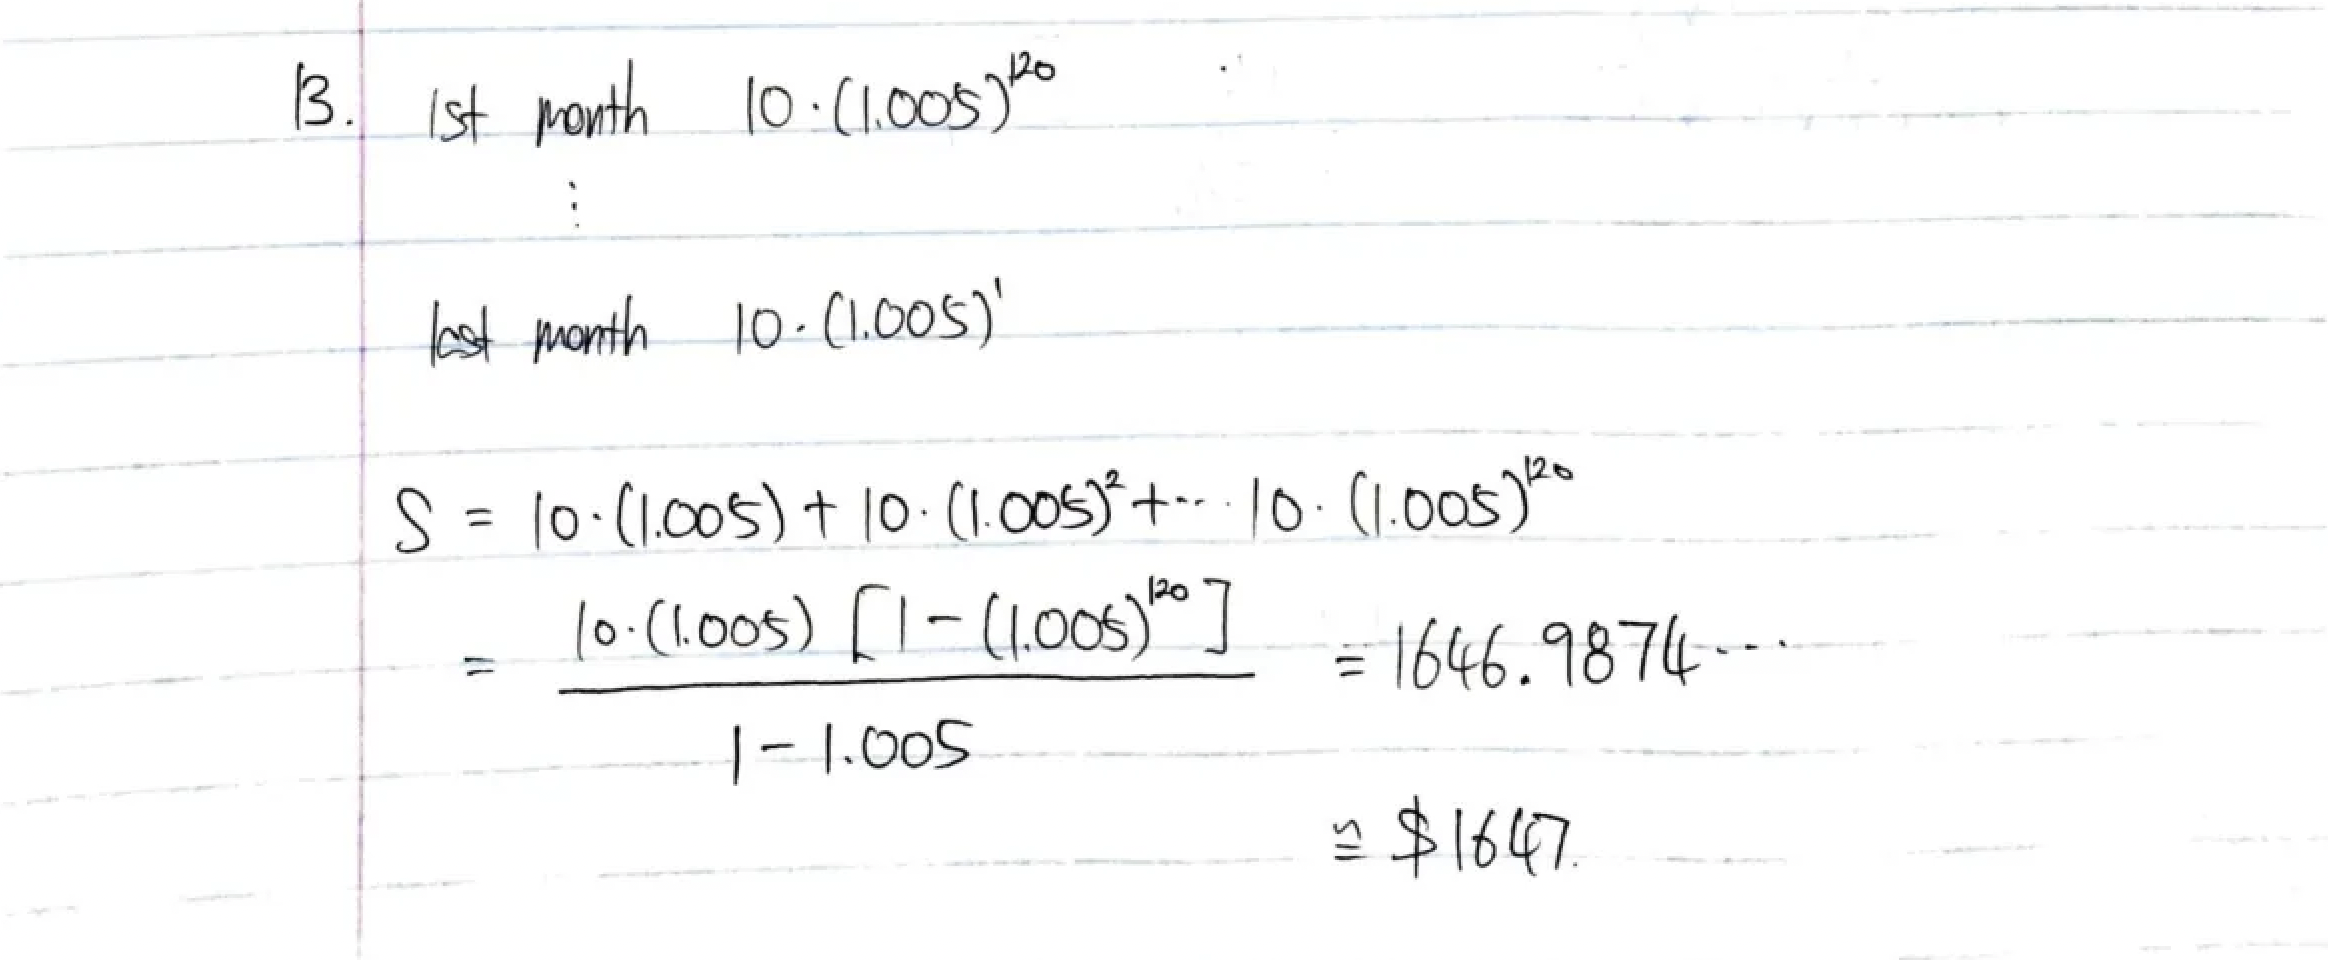 13. 1st month 10·(1.005)^120
⋮
last month 10·(1.005)^1
S = 10·(1.005) + 10·(1.005)^2 + ··· 10·(1.005)^120
= 10·(1.005) [1 - (1.005)^120] / 1 - 1.005 = 1646.9874···
≒ $1647.